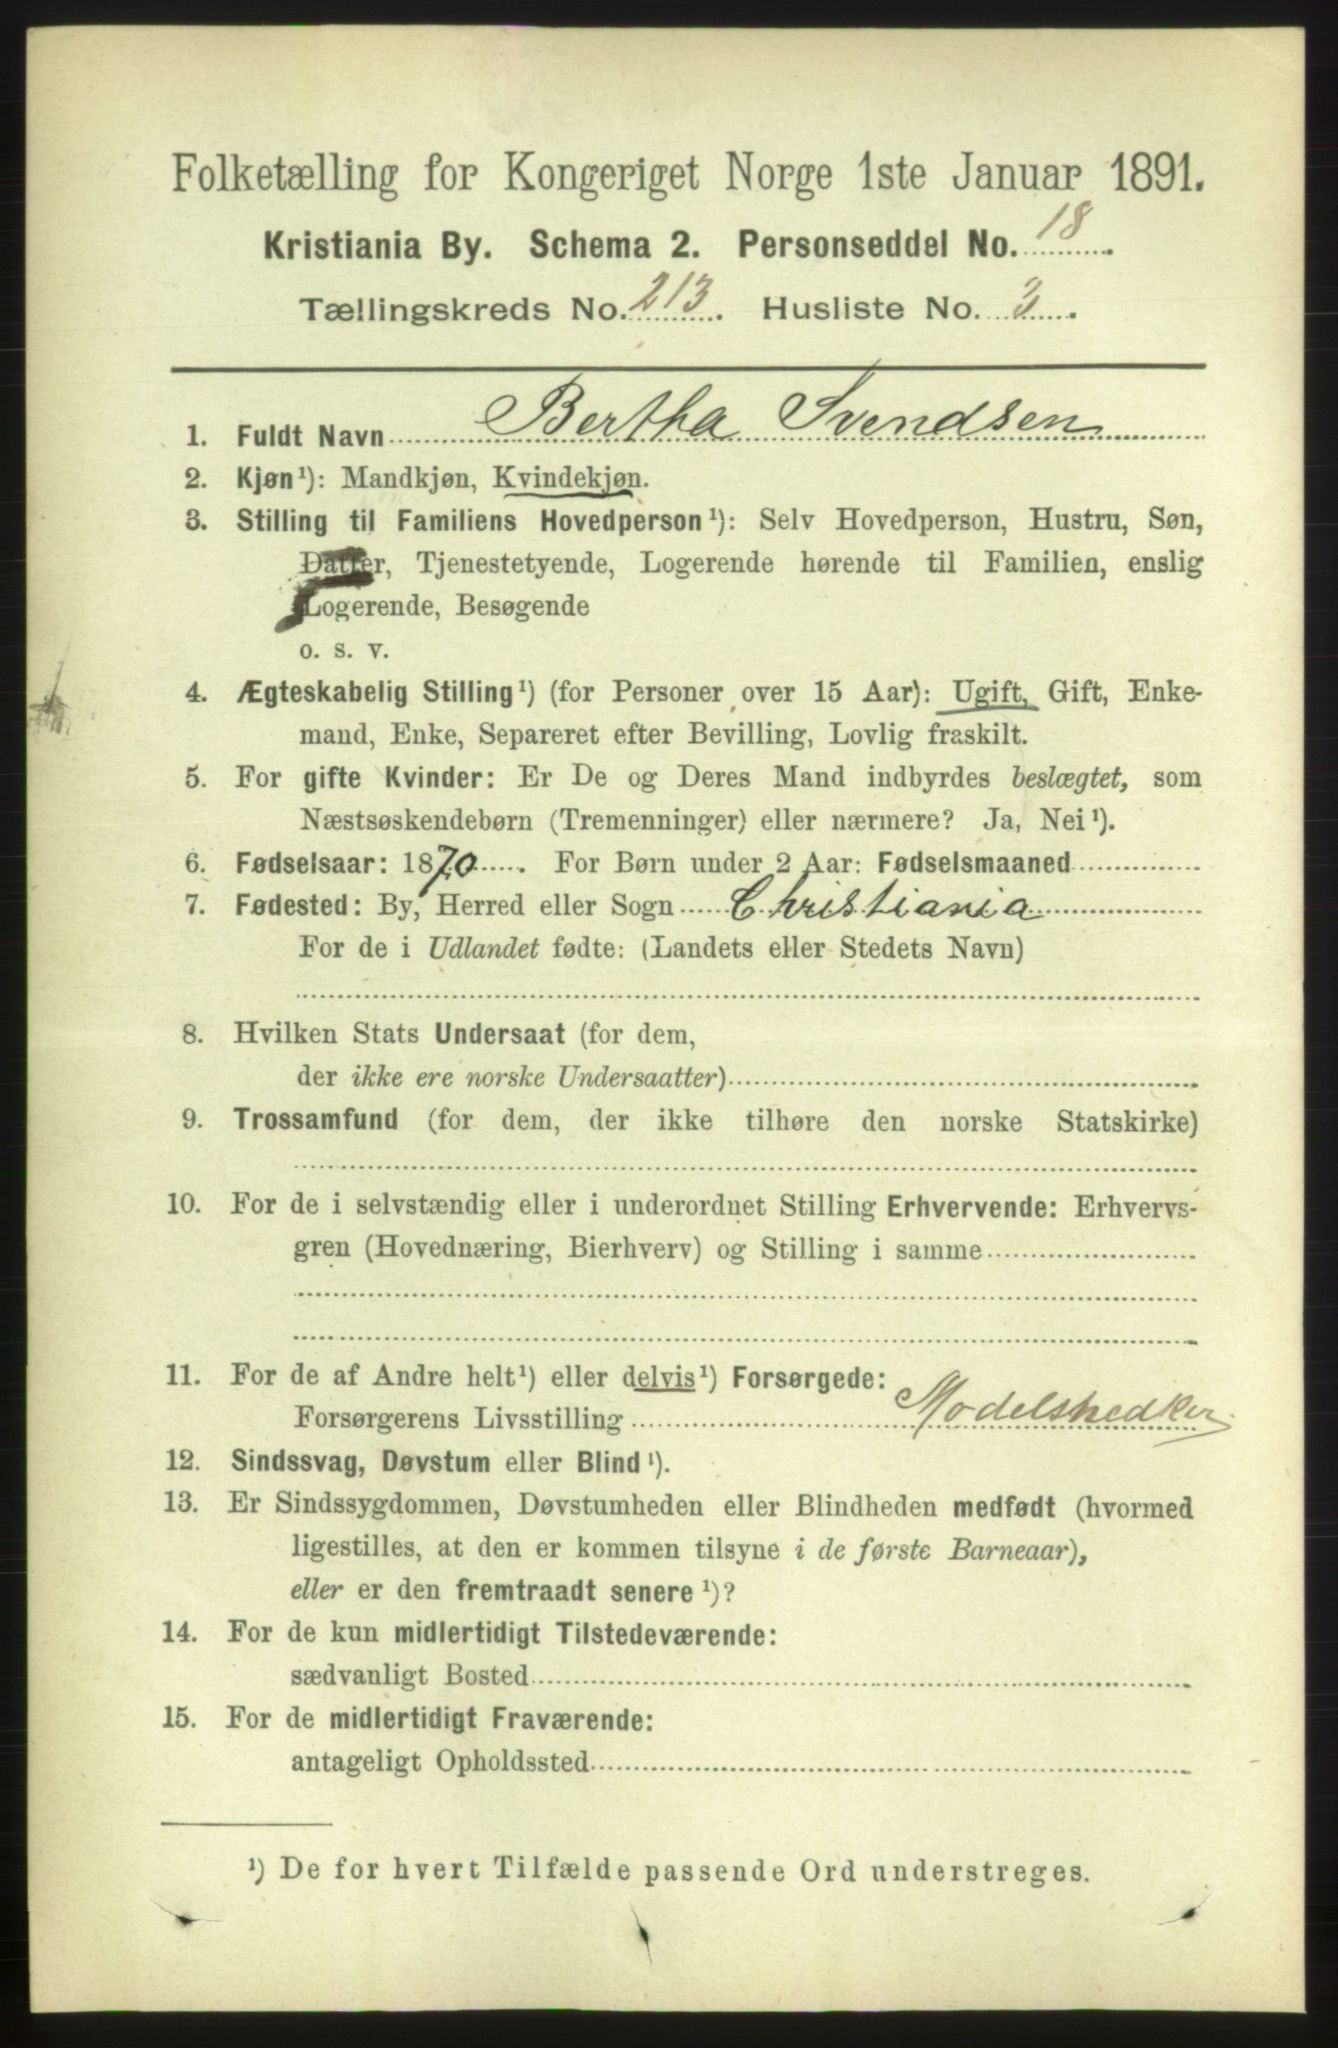 Folketælling for Kongeriget Norge 1ste Januar 1891.
Kristiania By. Schema 2. Personseddel No. 18.
Tællingskreds No. 213. Husliste No. 3.
1. Fuldt Navn Bertha Svendsen
2. Kjøn¹): Mandkjøn, Kvindekjøn.
3. Stilling til Familiens Hovedperson¹): Selv Hovedperson, Hustru, Søn,
Datter, Tjenestetyende, Logerende hørende til Familien, enslig
Logerende, Besøgende
o. s. v.
4. Ægteskabelig Stilling¹) (for Personer over 15 Aar): Ugift, Gift, Enke-
mand, Enke, Separeret efter Bevilling, Lovlig fraskilt.
5. For gifte Kvinder: Er De og Deres Mand indbyrdes beslægtet, som
Næstsøskendebørn (Tremenninger) eller nærmere? Ja, Nei¹).
6. Fødselsaar: 1870. For Børn under 2 Aar: Fødselsmaaned
7. Fødested: By, Herred eller Sogn Christiania
For de i Udlandet fødte: (Landets eller Stedets Navn)
8. Hvilken Stats Undersaat (for dem,
der ikke ere norske Undersaatter)
9. Trossamfund (for dem, der ikke tilhøre den norske Statskirke)
10. For de i selvstændig eller i underordnet Stilling Erhvervende: Erhvervs-
gren (Hovednæring, Bierhverv) og Stilling i samme
11. For de af Andre helt¹) eller delvis¹) Forsørgede:
Forsørgerens Livsstilling Modelsnedker
12. Sindssvag, Døvstum eller Blind¹).
13. Er Sindssygdommen, Døvstumheden eller Blindheden medfødt (hvormed
ligestilles, at den er kommen tilsyne i de første Barneaar),
eller er den fremtraadt senere¹)?
14. For de kun midlertidigt Tilstedeværende:
sædvanligt Bosted
15. For de midlertidigt Fraværende:
antageligt Opholdssted
¹) De for hvert Tilfælde passende Ord understreges.